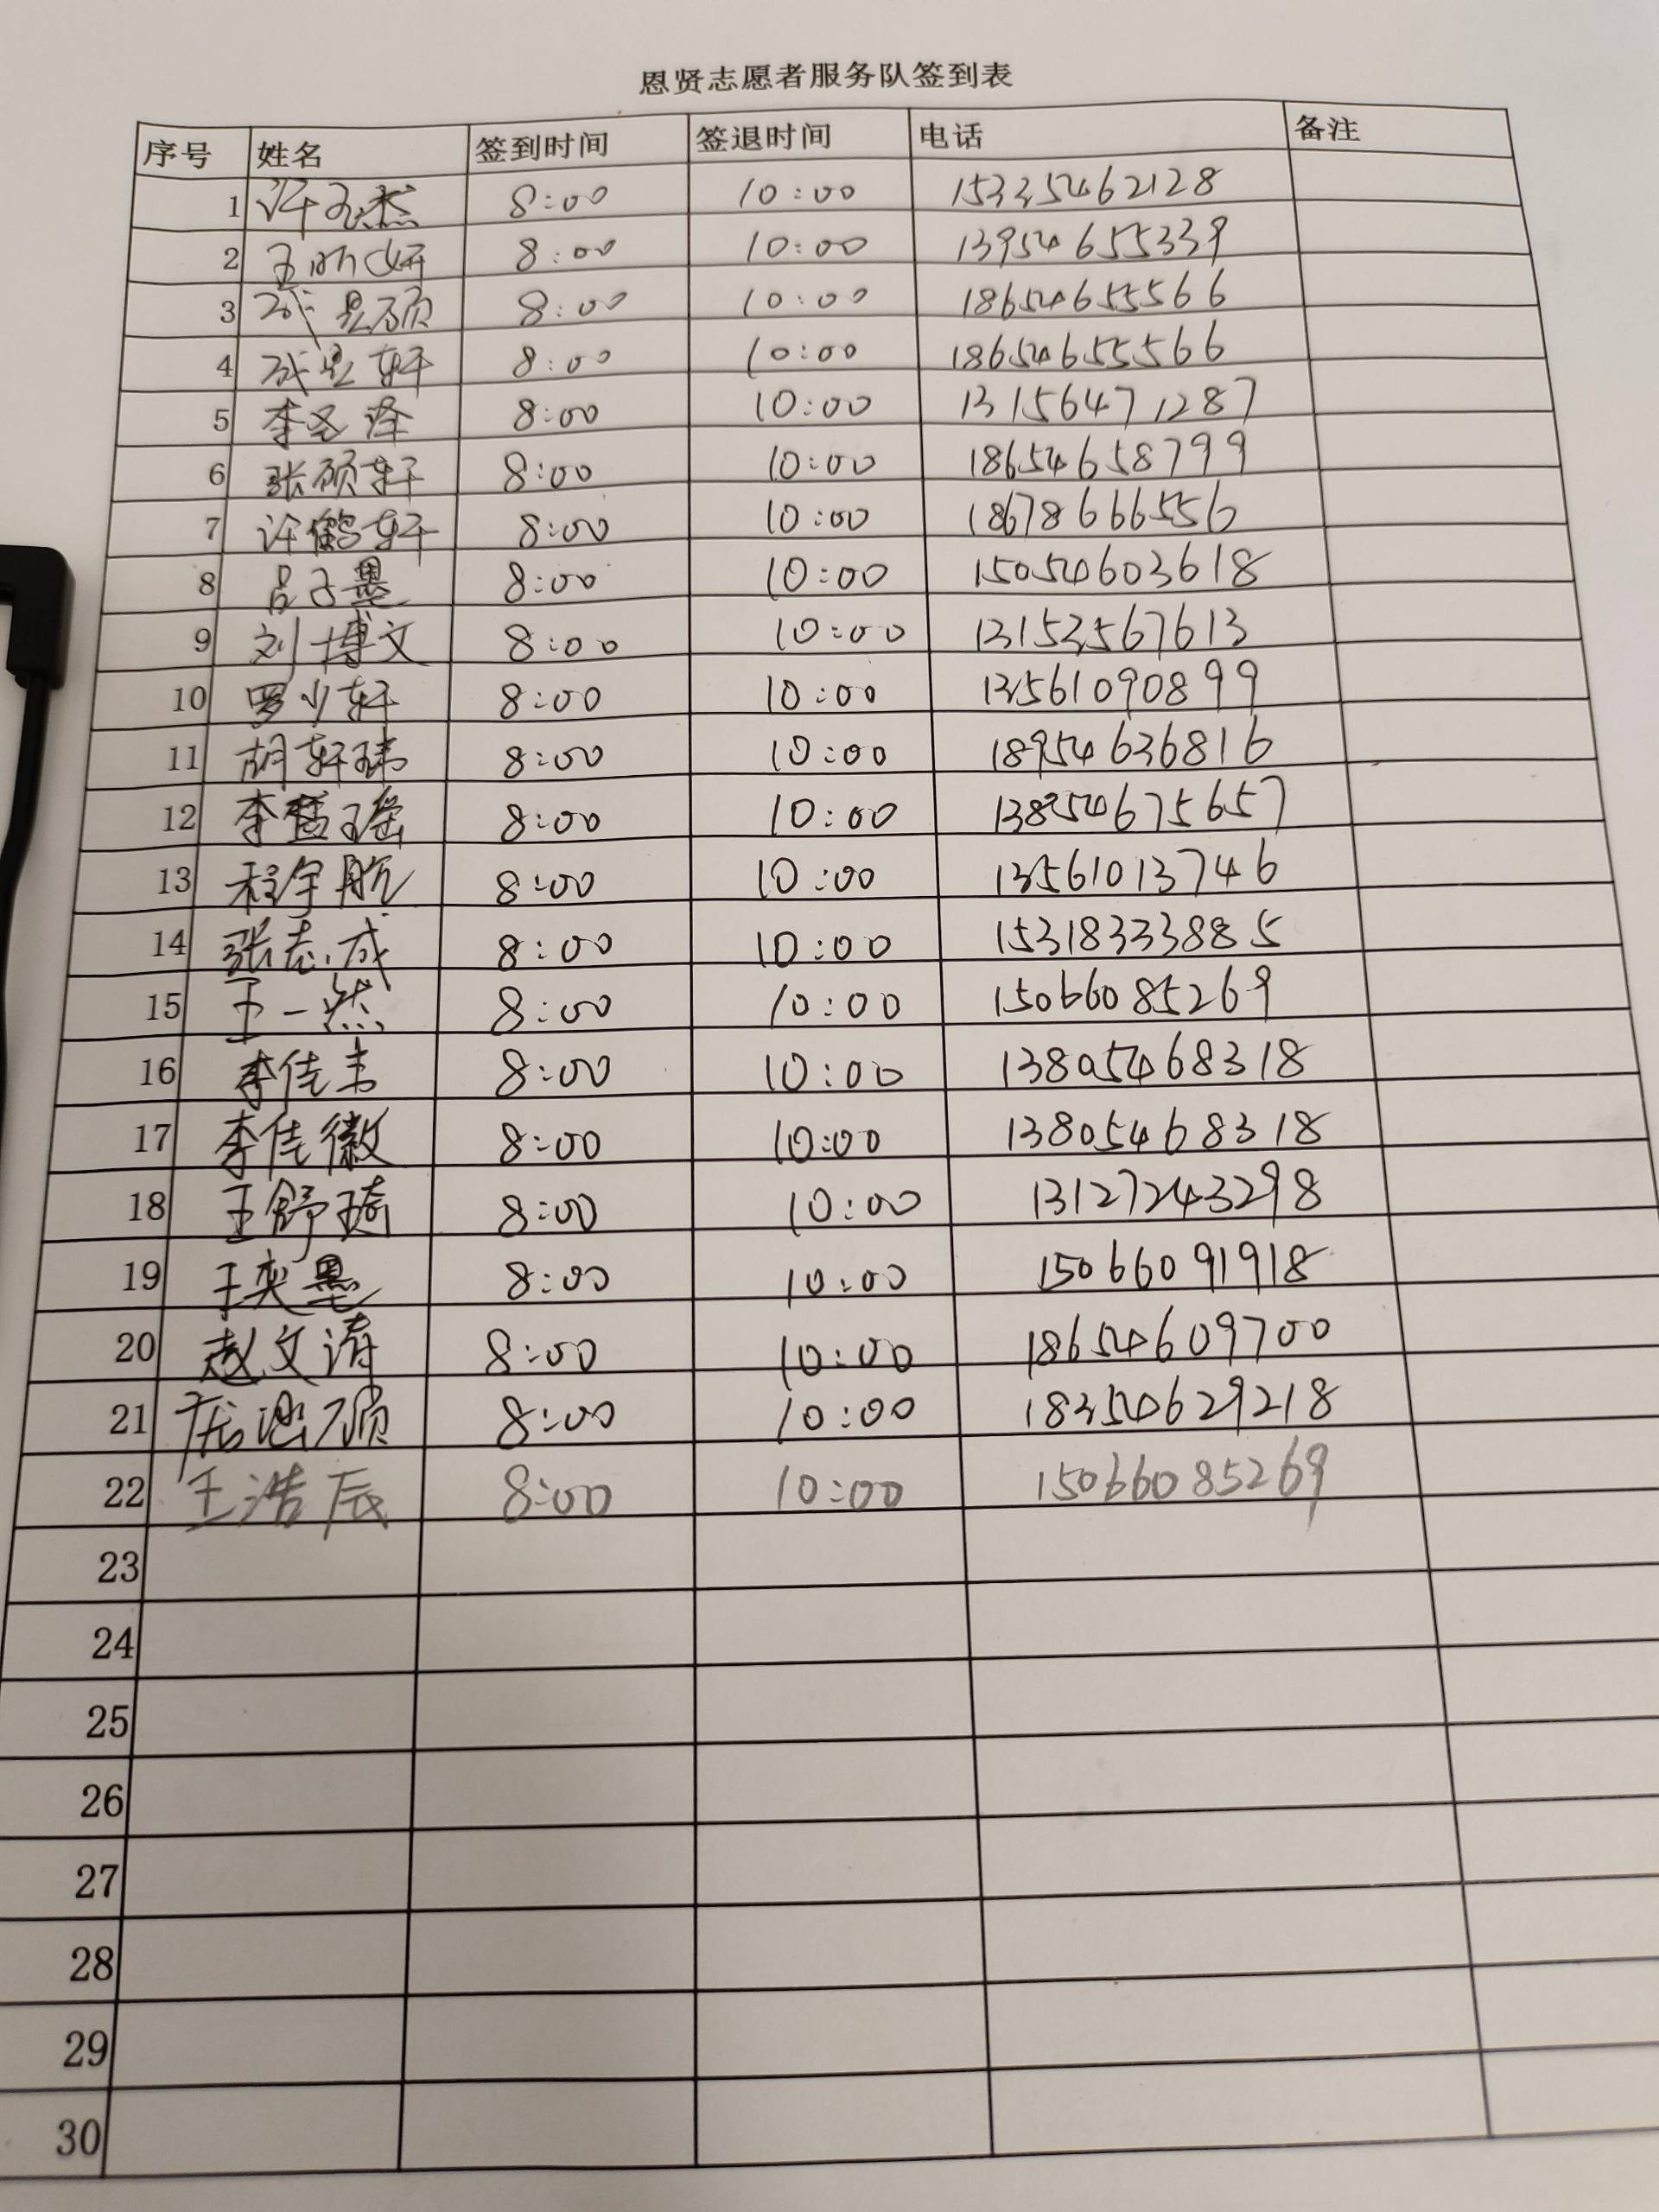 恩贤志愿者服务队签到表
序号 姓名 签到时间 签退时间 电话 备注
1 许孟杰 8:00 10:00 15325462128
2 王昕妍 8:00 10:00 13954655339
3 8:00 10:00 18654655566
4 8:00 10:00 18654655566
5 李圣泽 8:00 10:00 13156471287
6 张硕轩 8:00 10:00 18654658799
7 许鹤轩 8:00 10:00 18678666556
8 吕子墨 8:00 10:00 15054603618
9 刘博文 8:00 10:00 13153567613
10 罗少轩 8:00 10:00 13561090899
11 胡轩玮 8:00 10:00 18954636816
12 8:00 10:00 13854675657
13 程宇航 8:00 10:00 13561013746
14 张志成 8:00 10:00 15318333885
15 王一然 8:00 10:00 15066085269
16 李佳韦 8:00 10:00 13805468318
17 李佳徽 8:00 10:00 13805468318
18 王舒琦 8:00 10:00 13127243298
19 王奕墨 8:00 10:00 15066091918
20 赵文涛 8:00 10:00 18654609700
21 8:00 10:00 18354629218
22 王浩辰 8:00 10:00 15066085269
23
24
25
26
27
28
29
30